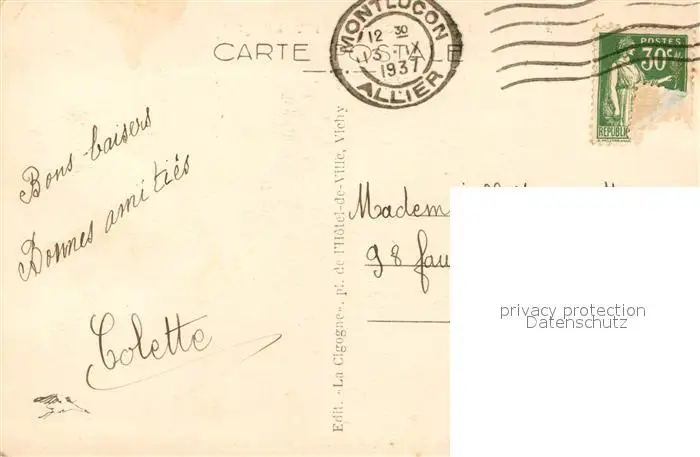 CARTE POSTALE
MONTLUCON
12 30
13 IX
1937
ALLIER
POSTES
30c
REPUBLIQ
Bons baisers
Bonnes amitiés
Colette
Edit. «La Cigogne», pl. de l'Hôtel-de-Ville, Vichy
98 fau
privacy protection
Datenschutz